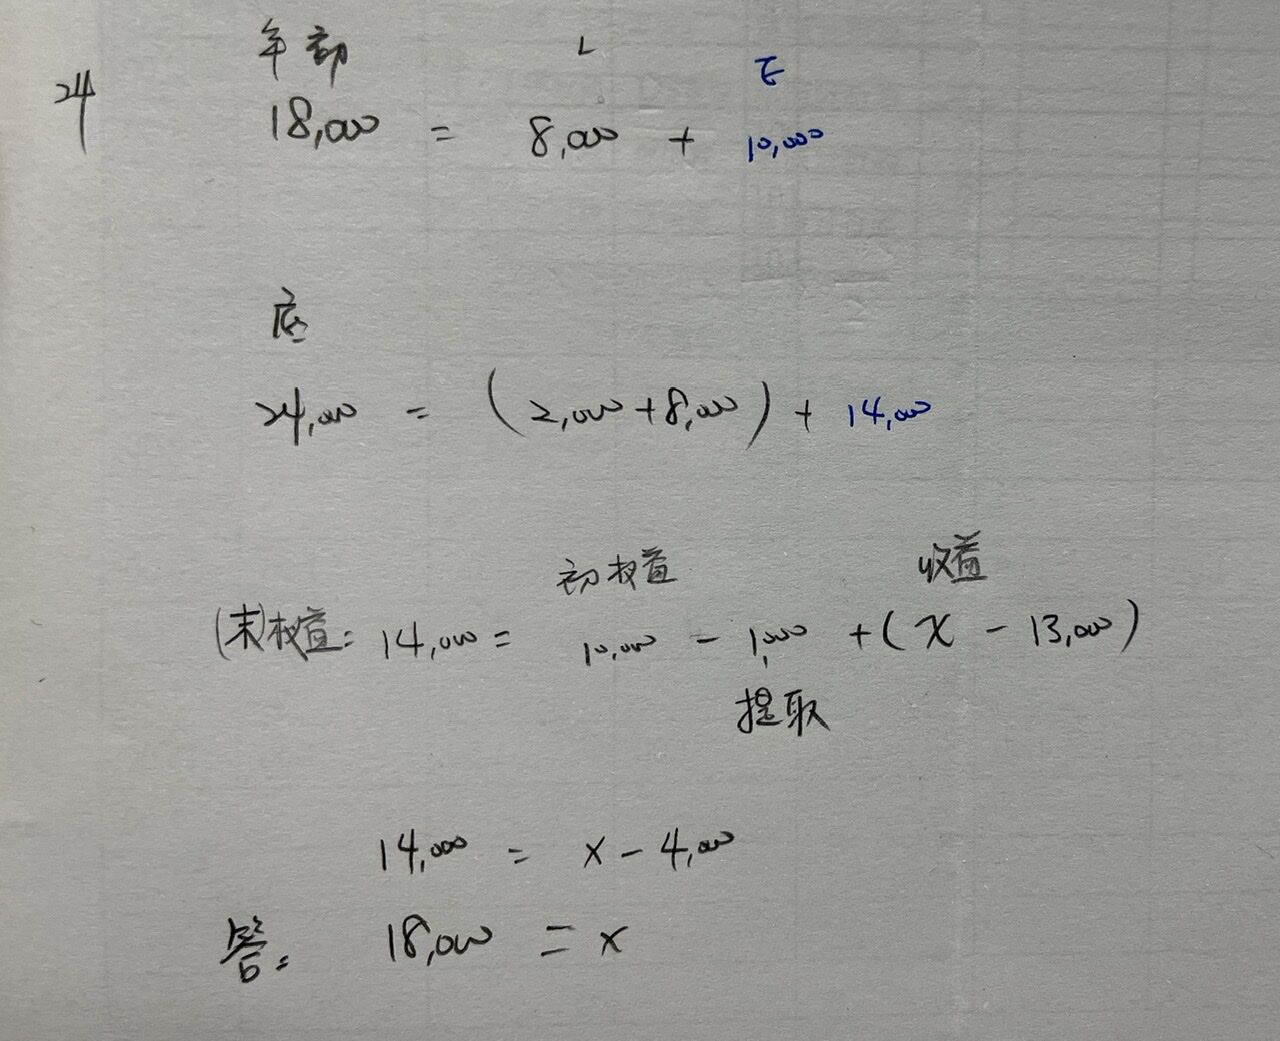 24
年初 L E
18,000 = 8,000 + 10,000
底
24,000 = (2,000+8,000) + 14,000
初权益 收益
(末)权益: 14,000 = 10,000 - 1,000 + (x - 13,000)
提取
14,000 = x - 4,000
答: 18,000 = x